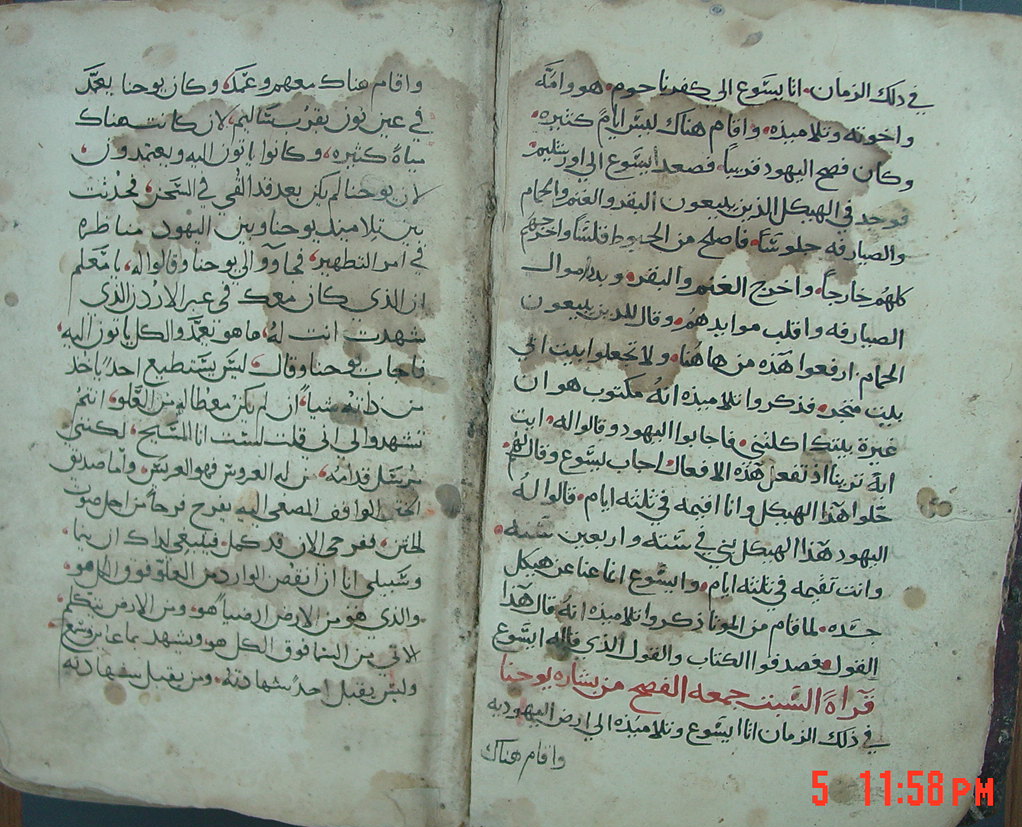 في ذلك الزمان. اتا يسوع الى كفرناحوم. هو وامه
واخوته وتلاميذه. واقام هناك ليس ايام كثيره.
وكان فصح اليهود قريباً. فصعد ايسوع الى اورشليم.
فوجد في الهيكل الذين يبيعون البقر والغنم والحمام
والصيارفه جلوساً. فاصلح من الخيوط فلساً واخرجهم
كلهم خارجاً. واخرج الغنم والبقر. وبدد اموال
الصيارفه واقلب موايدهم. وقال للذين يبيعون
الحمام. ارفعوا هذه من هاهنا. ولا تجعلوا بيت ابي
بيت متجر. فذكروا تلاميذه انه مكتوب هو ان
غيرة بيتك اكلتني. فاجابوا اليهود وقالوا له. ايت
اية ترينا اذ تفعل هذه الافعال اجاب يسوع وقال لهم.
حلوا هذا الهيكل وانا اقيمه في تلتة ايام. قالوا له
اليهود هذا الهيكل بني في ستة واربعين سنه.
وانت تقيمه في تلته ايام. وايسوع انما عنا عن هيكل
جسده. لما قام من الموتا ذكروا تلاميذه انه قال هذا
القول. فصدقوا الكتاب والقول الذي قاله ايسوع
قراة السبت جمعه الفصح من بشاره يوحنا
في ذلك الزمان اتا ايسوع وتلاميذه الى ارض اليهوديه
واقام هناك
واقام هناك معهم وعمد. وكان يوحنا يعمد
في عين نون بقرب ساليم. لان كانت هناك
مياة كثيره. وكانوا ياتون اليه ويعتمدون.
لان يوحنا لم يكن بعد قد القي في السجن. فحدثت
بين تلاميذ يوحنا وبين اليهود مناظره
في امر التطهير. فجاووا الى يوحنا وقالوا له. يا معلم
ان الذي كان معك في عبر الاردن الذي
شهدت انت له. ها هو يعمد والكل ياتون اليه
فاجاب يوحنا وقال. ليس يستطيع احدٌ ياخذ
من ذاته شياً. ان لم يكن معطا له من العلو. انتم
تشهدوا لي اني قلت لست انا المسيح. لكنني
مرسل قدامه. من له العروس فهو العريس. واما صديق
الختن الواقف المصغي اليه يفرح فرحاً من اجل صوت
الختن. ففرحي الان قد كمل. فينبغي لذاك ان ينما.
وسبيلي انا ان انقص الوارد من العلو فوق الكل هو.
والذي هو من الارض ارضياً هو. ومن الارض يتكلم.
لاتي من السما فوق الكل هو. ويشهد بما عاين وسمع
وليس يقبل احدٌ شهادته. ومن يقبل شهادته
5 11:58 PM